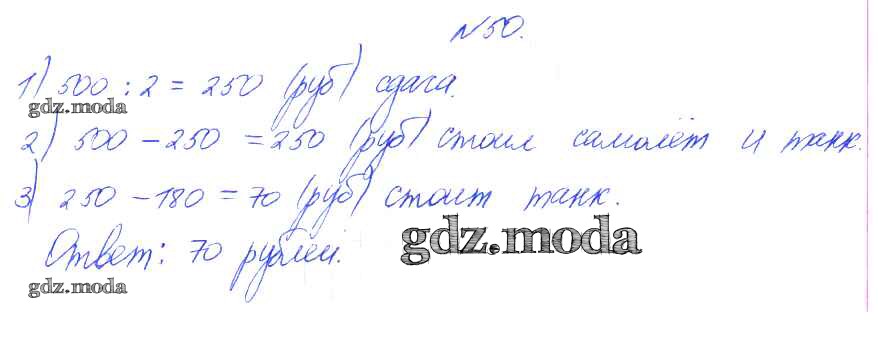 №50.
1) 500 : 2 = 250 (руб) сдача.
gdz.moda
2) 500 - 250 = 250 (руб) стоил самолёт и танк.
3) 250 - 180 = 70 (руб) стоит танк.
Ответ: 70 рублей.
gdz.moda
gdz.moda